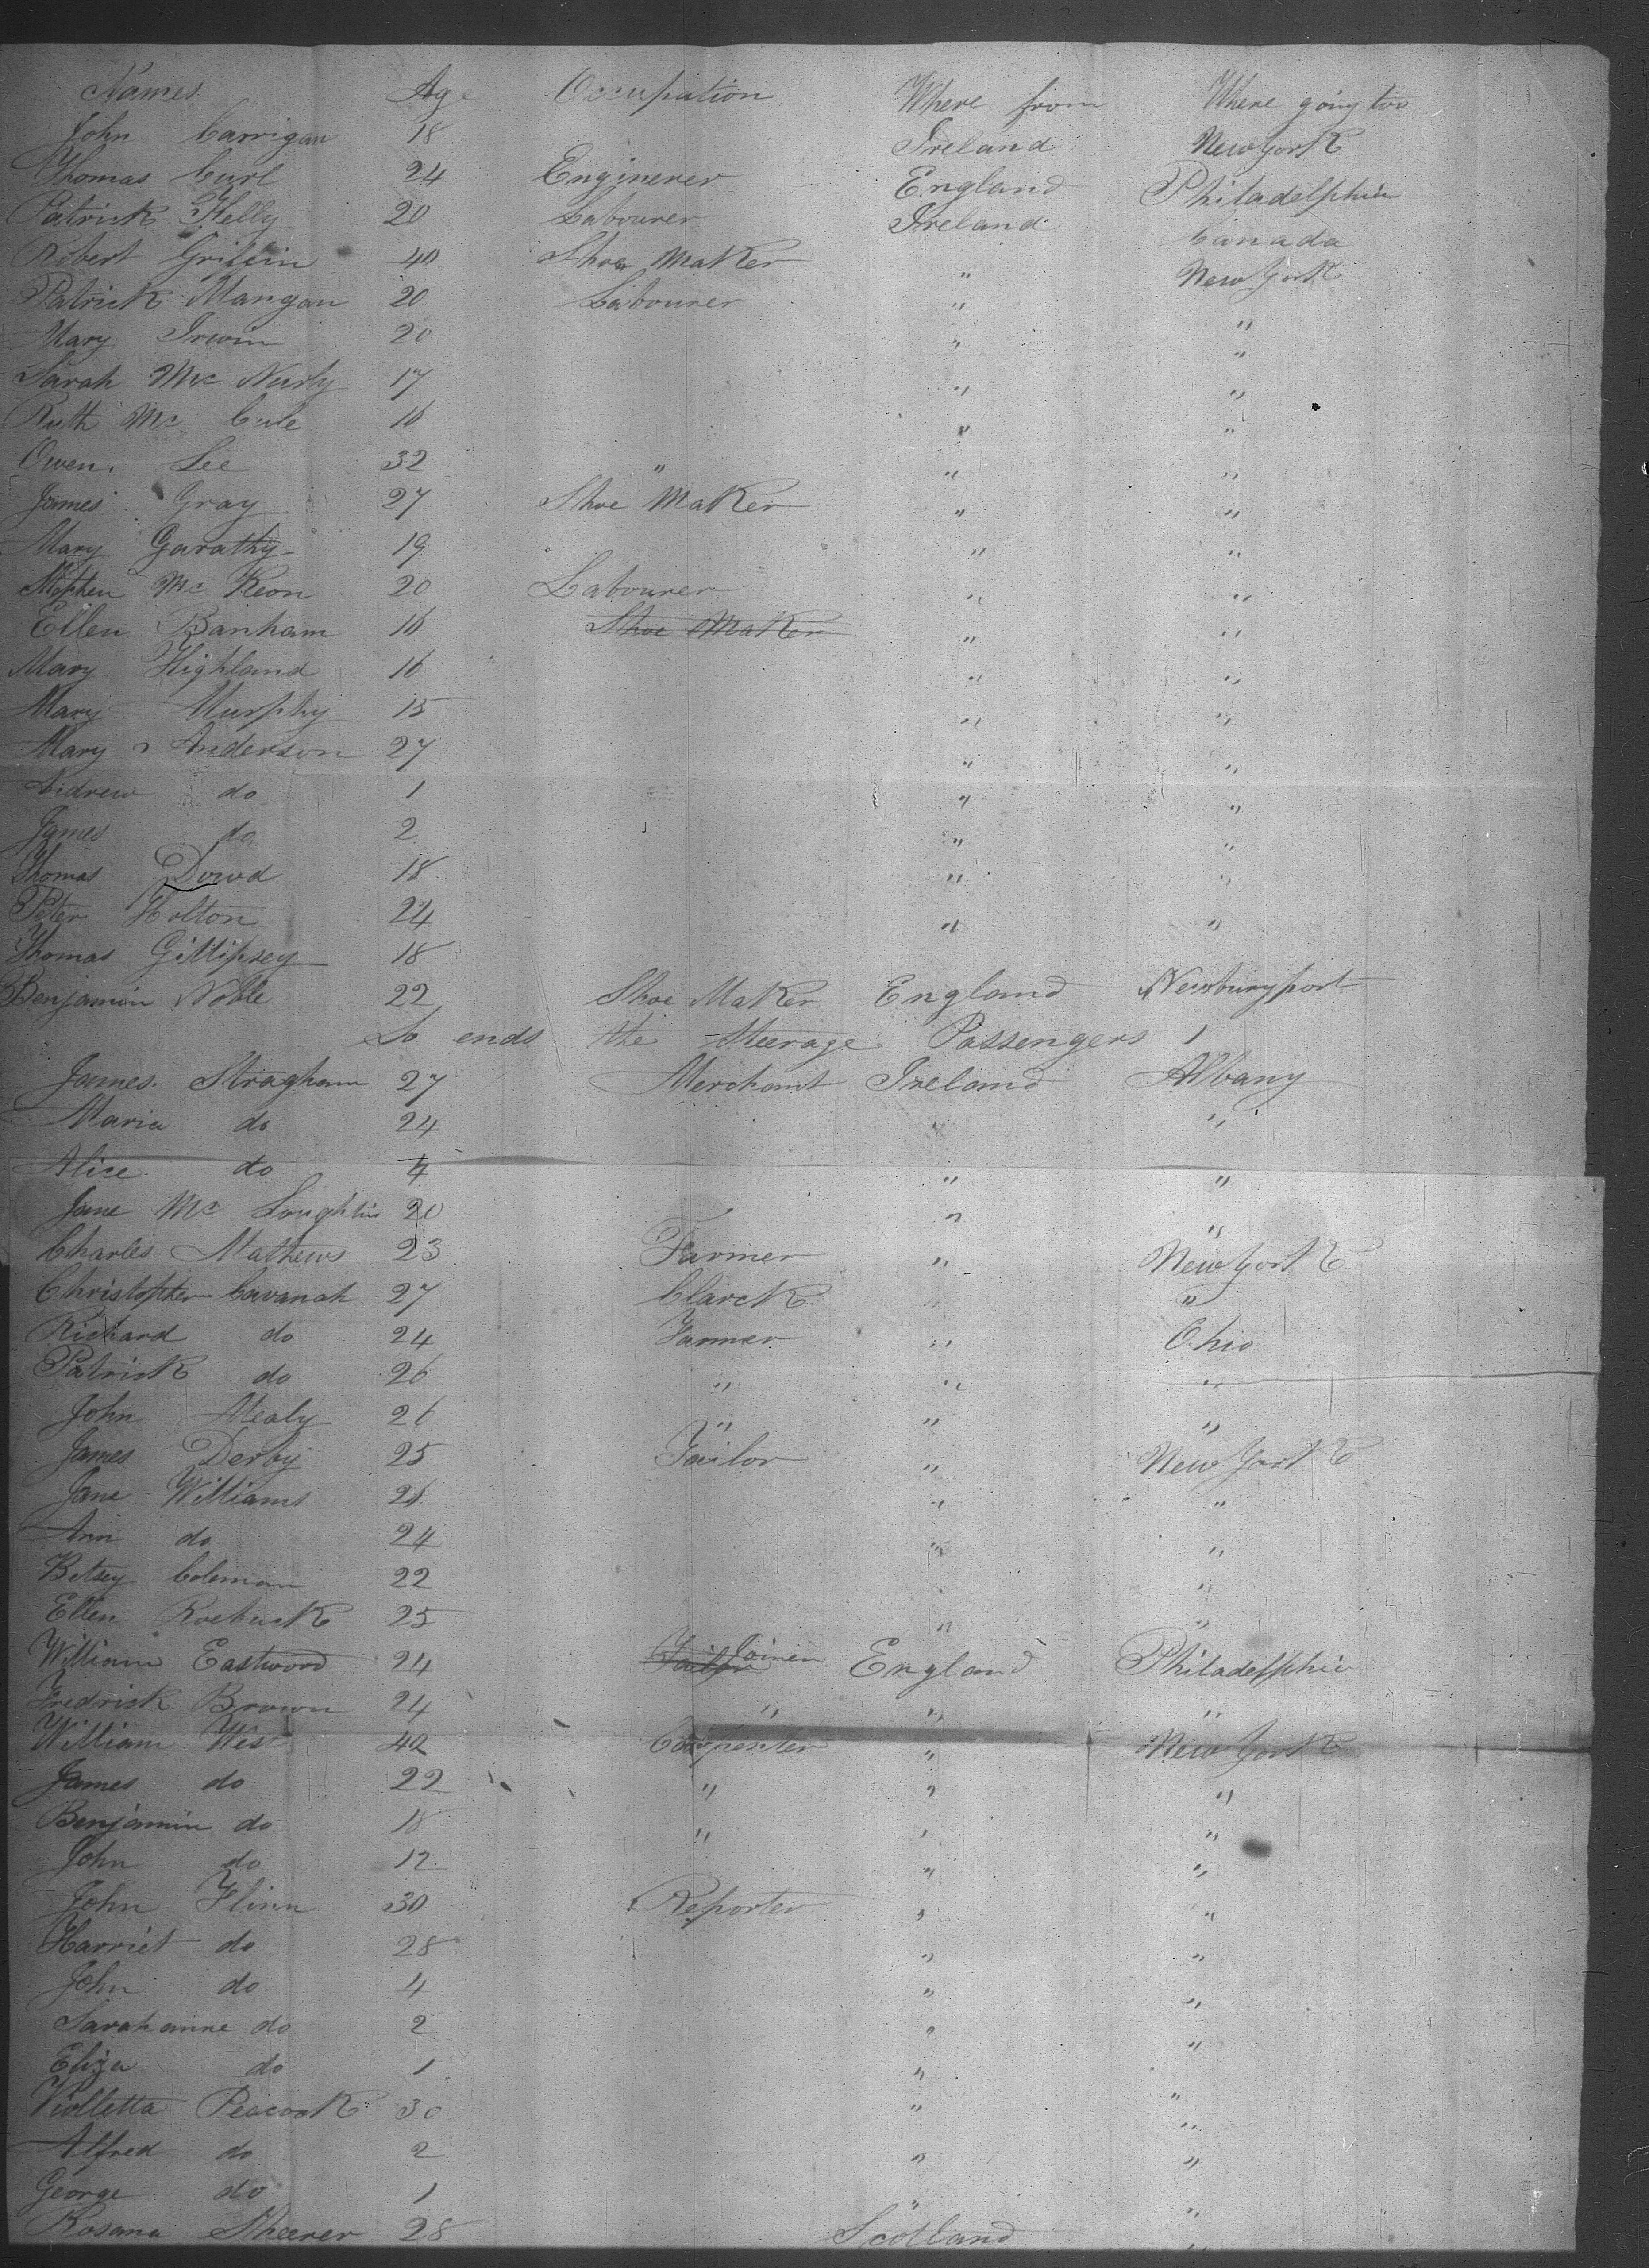 Names Age Occupation Where from Where going too
John Carrigan 18 Ireland New York
Thomas Curl 24 Enginerer England Philadelphia
Patrick Kelly 20 Labourer Ireland Canada
Robert Griffin 40 Shoe Maker " New York
Patrick Mangan 20 Labourer " "
Mary Irwin 20 " "
Sarah Mc Nurly 17 " "
Ruth Mc Cule 16 " "
Owen Lee 32 " " "
James Gray 27 Shoe Maker " "
Mary Garathy 19 " "
Stephen Mc Keon 20 Labourer " "
Ellen Banham 16 Shoe Maker " "
Mary Highland 16 " "
Mary Murphy 15 " "
Mary Anderson 27 " "
Andrew do 1 " "
James do 2 " "
Thomas Dowd 18 " "
Peter Holton 24 " "
Thomas Gillipsey 18
Benjamin Noble 22 Shoe Maker England Newburyport
So ends the Steerage Passengers
James Straghan 27 Merchant Ireland Albany
Maria do 24 " "
Alice do 4 " "
Jane Mc Loughlin 20 " "
Charles Mathews 23 Farmer " New York
Christopher Cavanah 27 Clarck " "
Richard do 24 Farmer " Ohio
Patrick do 26 " " "
John Mealy 26 " " "
James Derby 25 Tailor " New York
Jane Williams 26 " "
Ann do 24 " "
Betsey Coleman 22 "
Ellen Roebuck 25 " "
William Eastwood 24 Tailor Joiner England Philadelphia
Fredrick Brown 24 " " "
William West 42 Carpenter " New York
James do 22 " " "
Benjamin do 18 " " "
John do 12 " "
John Flinn 30 Reporter " "
Harriet do 28 " "
John do 4 " "
Sarah anne do 2 " "
Eliza do 1 " "
Violletta Peacock 30 " "
Alfred do 2 " "
George do 1 " "
Rosana Sheerer 28 Scotland "